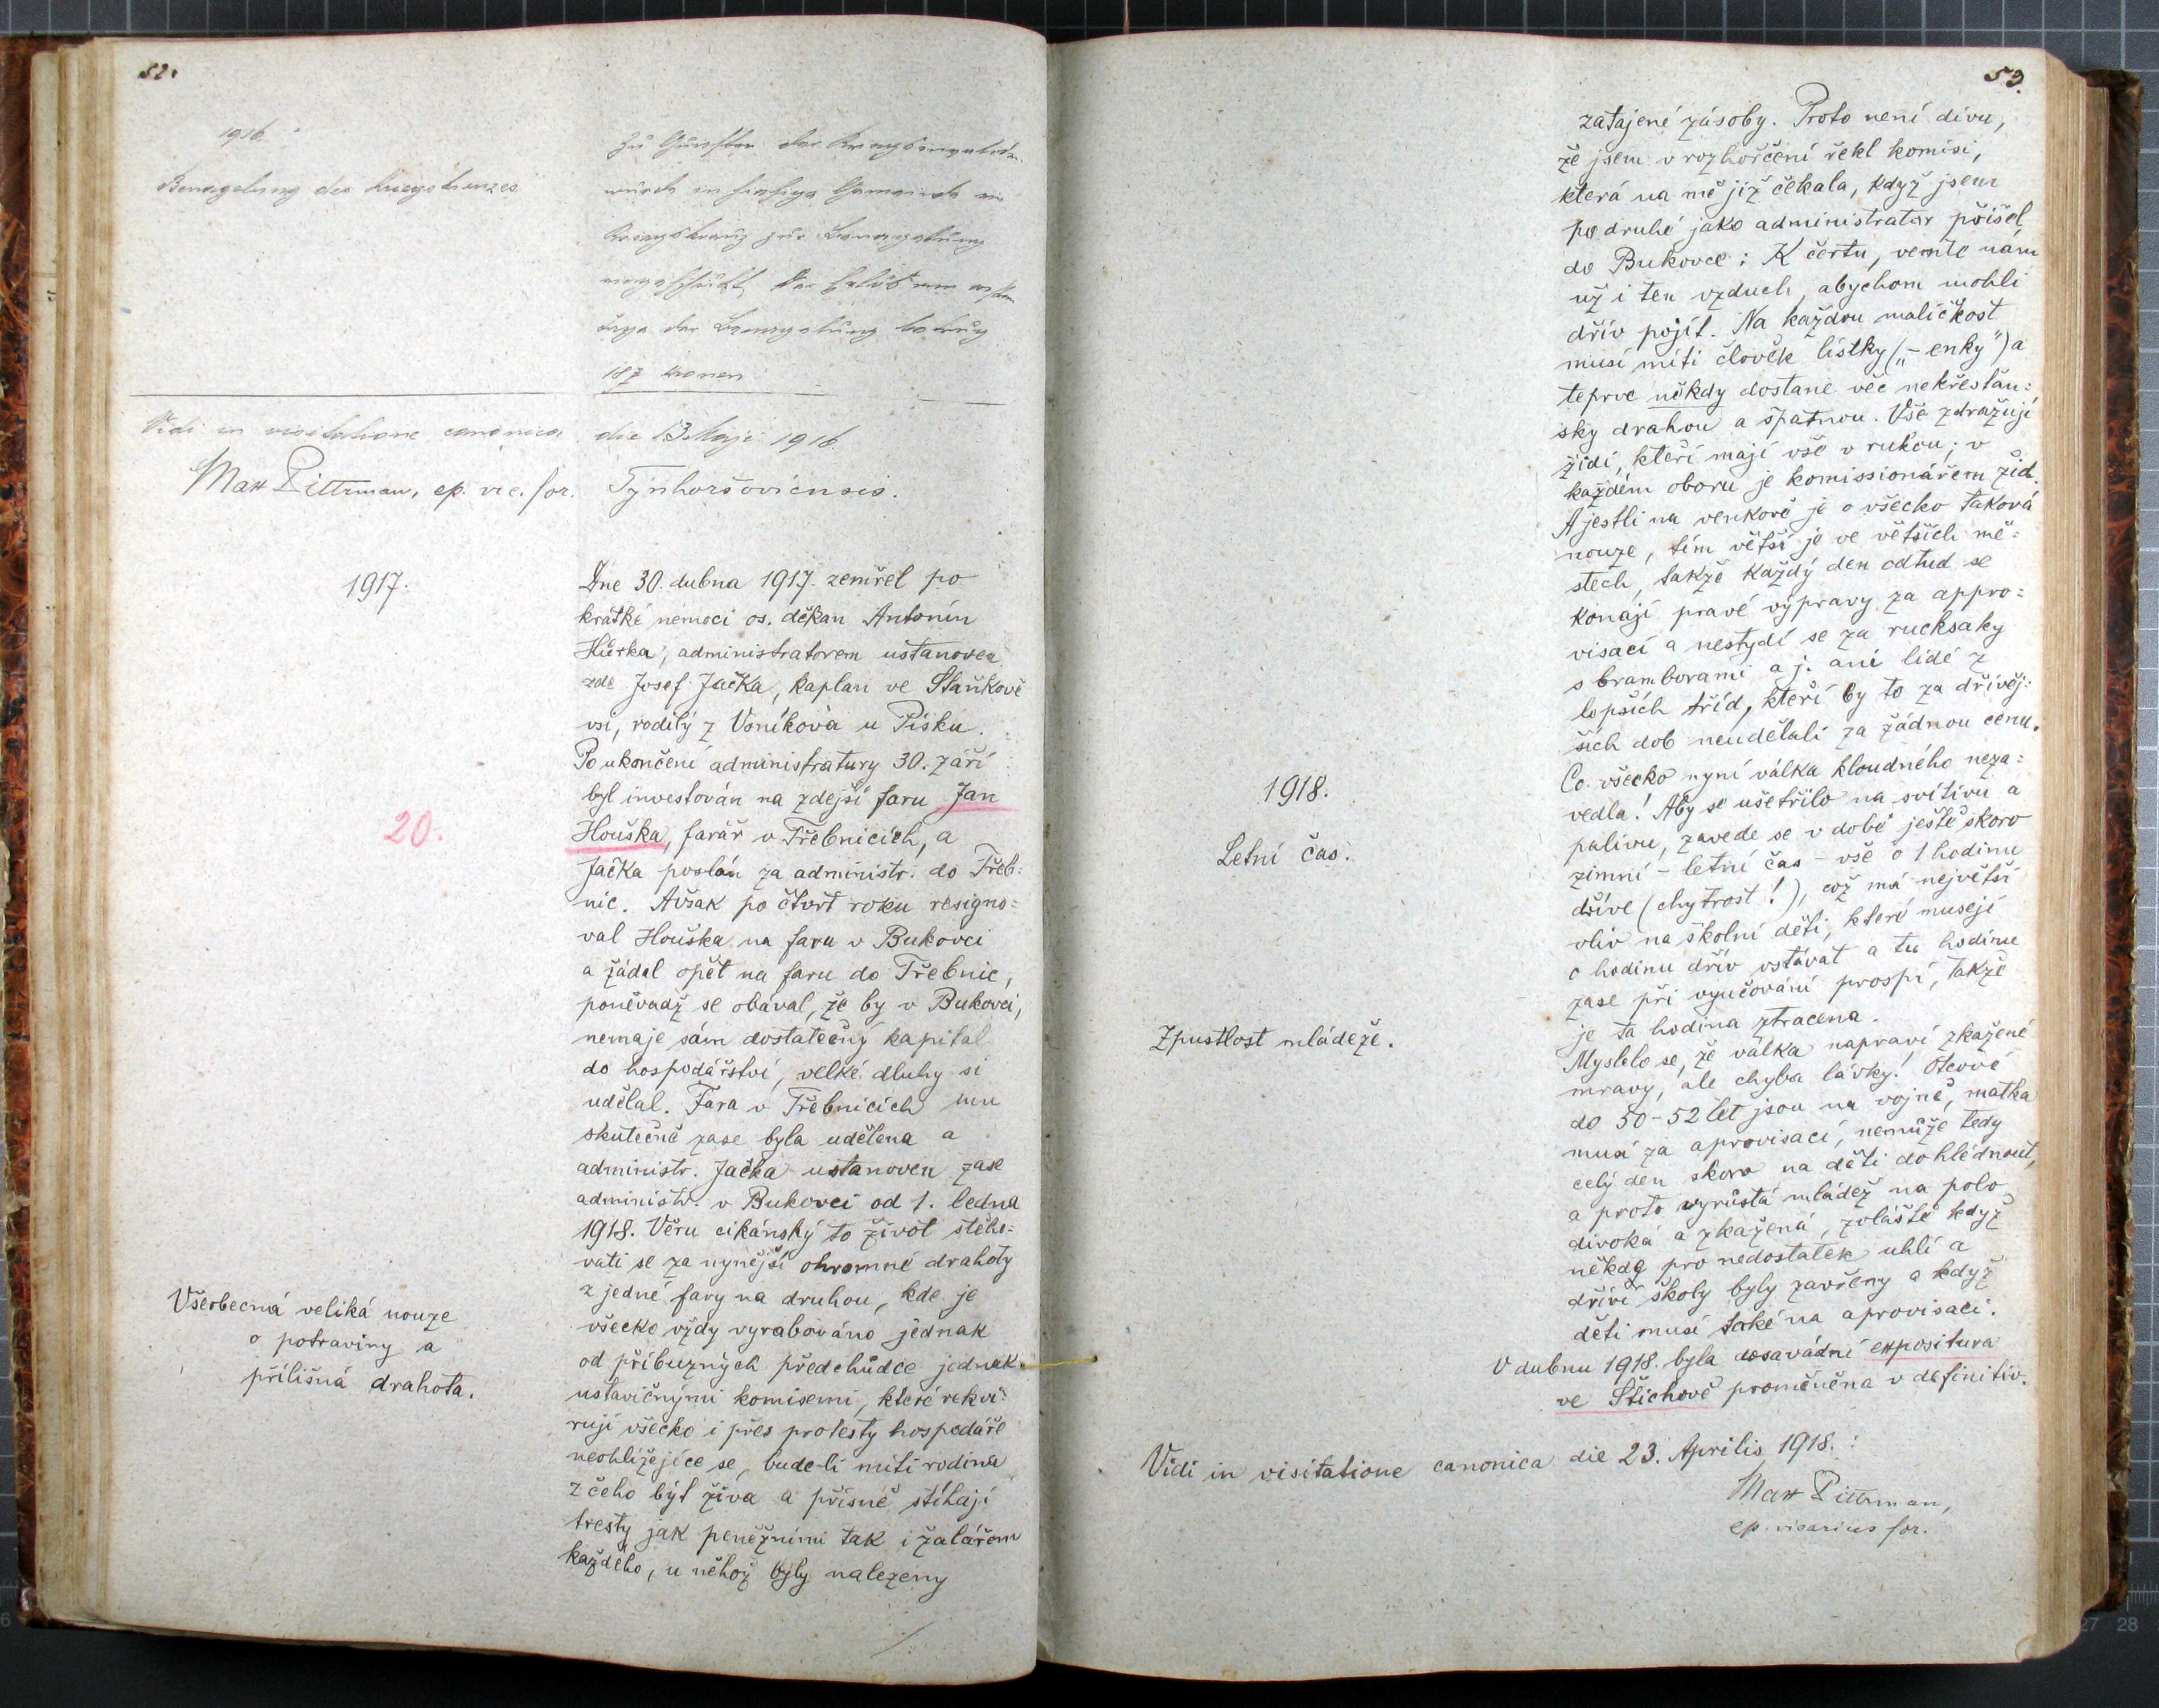 52.
1916.
Benagelung des Kriegskreuzes
Zu Gunsten der Kriegsinvaliden
wurde in hiesiger Gemeinde ein
Kriegskreuz zur Benagelung
der Benagelung betrug
187 Kronen
Vidi in visitatione canonica die 13 Maji 1916.
Max Pittrman, ep. vic. for. Týnhoršoviensis.
1917.
Dne 30. dubna 1917. zemřel po
krátké nemoci os. děkan Antonín
Hürka, administratorem ustanoven
zde Josef Jačka, kaplan ve Staňkově
vsi, rodilý z Vsníkova u Písku.
Po ukončení administratury 30. září
byl investován na zdejší faru Jan
20.
Houška, farář v Třebnicích, a
Jačka poslán za administr. do Třeb=
nic. Avšak po čtvrt roku resigno=
val Houška na faru v Bukovci
a žádal opět na faru do Třebnic,
poněvadž se obával, že by v Bukovci,
nemaje sám dostatečný kapital
do hospodářství, velké dluhy si
udělal. Fara v Třebnicích mu
skutečně zase byla udělena a
administr. Jačka ustanoven zase
administr. v Bukovci od 1. ledna
1918. Věru cikánský to život stěho=
vati se za nynější ohromné drahoty
z jedné fary na druhou, kde je
všecko vždy vyrabováno jednak
od příbuzných předchůdce jednak
ustavičnými komisemi, které rekvi=
rují všecko i přes protesty hospodáře
neohlížejíce se, bude-li míti rodina
z čeho být živa a přísně stíhají
tresty jak peněžními tak i žalářem
každého, u něhož byly nalezeny
Všeobecná veliká nouze
o potraviny a
přílišná drahota.
53.
zatajené zásoby. Proto není divu,
že jsem v rozhořčení řekl komisi,
která na mě již čekala, když jsem
po druhé jako administrator přišel
do Bukovce: K čertu, vemte nám
už i ten vzduch, abychom mohli
dřív pojít. Na každou maličkost
musí míti člověk lístky („-enky") a
teprve někdy dostane věc nekřesťan=
sky drahou a špatnou. Vše zdražují
židi, kteří mají vše v rukou; v
každém oboru je komissionářem žid.
A jestli na venkově je o všecko taková
nouze, tím větší je ve větších mě=
stech, takže každý den odtud se
konají pravé výpravy za appro=
visací a nestydí se za rucksaky
s bramborami a j. ani lidé z
lepších tříd, kteří by to za dřívěj=
ších dob neudělali za žádnou cenu.
1918.
Co všecko nyní válka kloudného neza=
vedla! Aby se ušetřilo na svítivu a
palivu, zavede se v době ještě skoro
Letní čas.
zimní - letní čas - vše o 1 hodinu
dříve (chytrost!), což má největší
vliv na školní děti, které musejí
o hodinu dřív vstávat a tu hodinu
zase při vyučování prospí, takže
je ta hodina ztracena.
Zpustlost mládeže.
Myslelo se, že válka napraví zkažené
mravy, ale chyba lávky! Otcové
do 50-52 let jsou na vojně, matka
musí za aprovisací, nemůže tedy
celý den skoro na děti dohlédnout,
a proto vyrůstá mládež na polo
divoká a zkažená, zvláště když
někdy pro nedostatek uhlí a
dříví školy byly zavřeny a když
děti musí také na aprovisaci.
V dubnu 1918. byla dosavádní expositura
ve Štichově proměněna v definitiv.
Vidi in visitatione canonica die 23. Aprilis 1918.:
Max Pittrman,
ep. vicarius for.